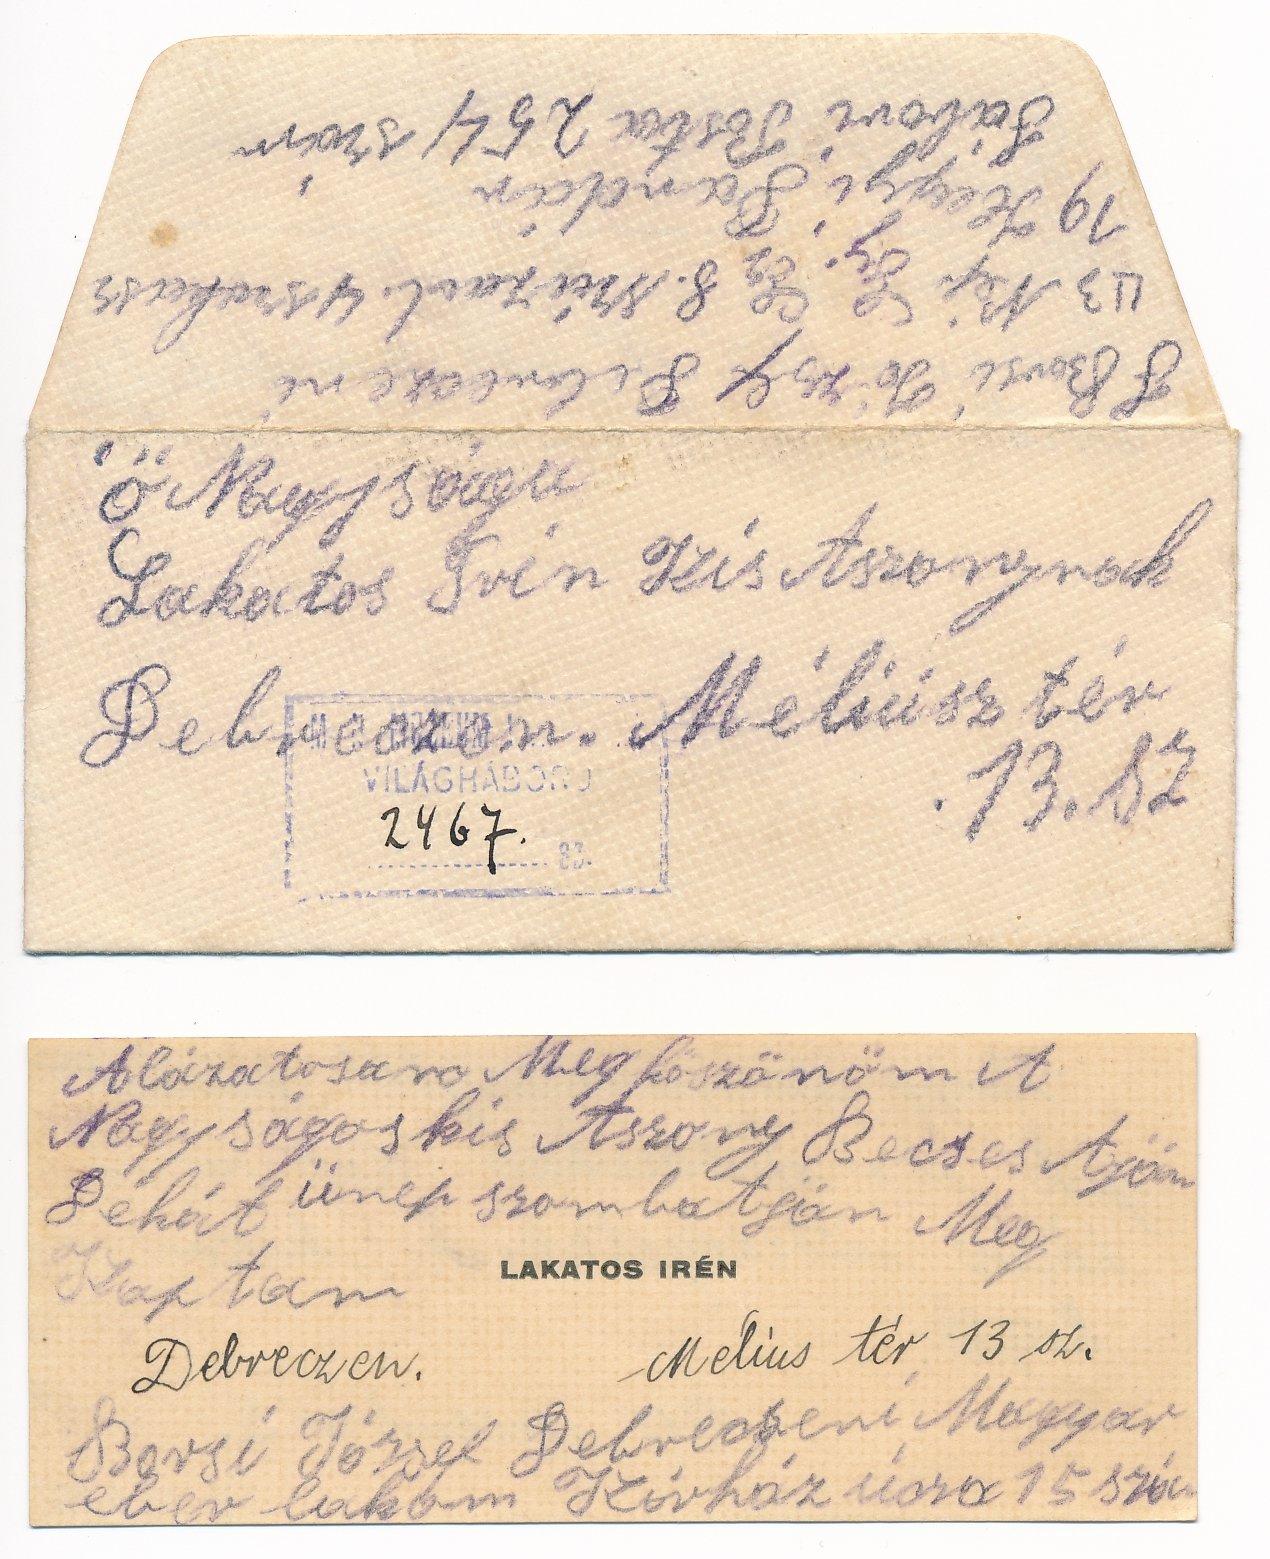 F Borsi József Debreczeni
43 Nép. F. Gy. Ez 8. század. 4 szakasz
19 Hegyi Dandár
Tábori Posta 254 szám
Ő Nagysága
Lakatos Irén Kis Aszonynak
Debreczen. Méliúsz tér
.13. SZ
VILÁGHÁBORÚ
2467.
83.
Alázatosan Meg köszönöm A
Nagyságos kis Aszony Becses Aján
Dékát ünep szombatján Meg
Kaptam
LAKATOS IRÉN
Debreczen. Mélius tér 13 sz.
Borsi József Debreczeni Magyar
eber lakom Kórház úcza 15 szám